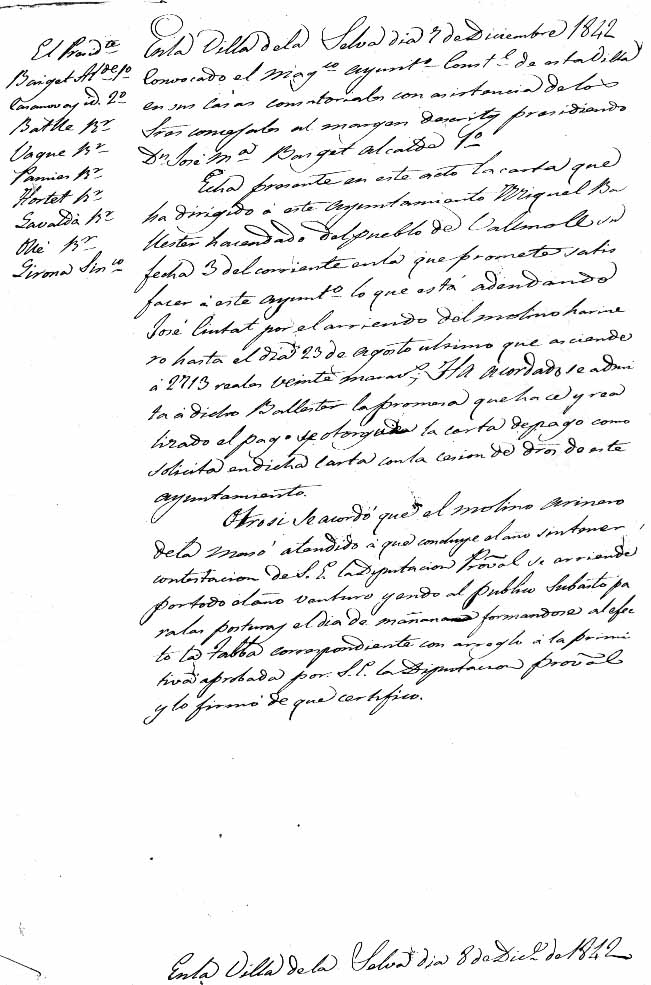 El Presid.te
Baiget Al.de 1º
Casanovas id. 2º
Batlle R.r
Vaque R.r
Pamies R.r
Hortet R.r
Gavaldá R.r
Ollé R.r
Girona Sin.co
En la Villa de la Selva dia 7 de Diciembre 1842
Convocado el mag.co ayunt.o Const.l de esta Villa
en sus casas consistoriales con asistencia de los
Sres concejales al margen descrits presidiendo
Dn José M.a Baiget Alcalde 1º
Echa presente en este acto la carta que
ha dirigido á este ayuntamiento Miguel Ba
llester hacendado del pueblo de Vallmoll su
fecha 3 del corriente en la que promete satis
facer á este ayunt.o lo que está adeudando
José Ciutat por el arriendo del molino harine
ro hasta el dia 23 de agosto ultimo que asciende
á 2713 reales veinte marav.s; Ha acordado se admi
ta á dicho Ballester la promesa que hace y rea
lizado el pago se otorgue la carta de pago como
solicita en dicha carta con la cesion de dros de este
ayuntamiento.
Otrosi se acordó que el molino arinero
de la Masó atendido á que concluye el año sin tener
contestacion de S. E. la Diputacion Provãl se arriende
por todo el año venturo yendo al publico subasto pa
ra las posturas el dia de mañana formandose al efec
to la tabba correspondiente con arreglo á la primi
tiva aprobada por S. E. la Diputacion provãl
y lo firmó de que certifico.
En la Villa de la Selva dia 8 de Dic.e de 1842